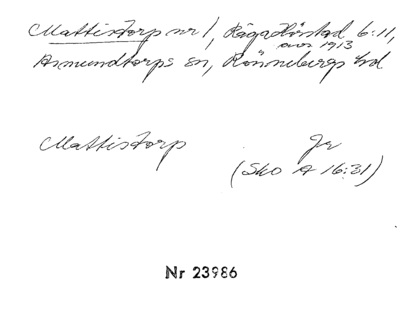 Mattistorp nr 1, Rågahörstad 6:11,
avs 1913
Asmundtorps sn, Rönnebergs hd
Mattistorp Jr
(Sko A 16:31)
Nr 23986